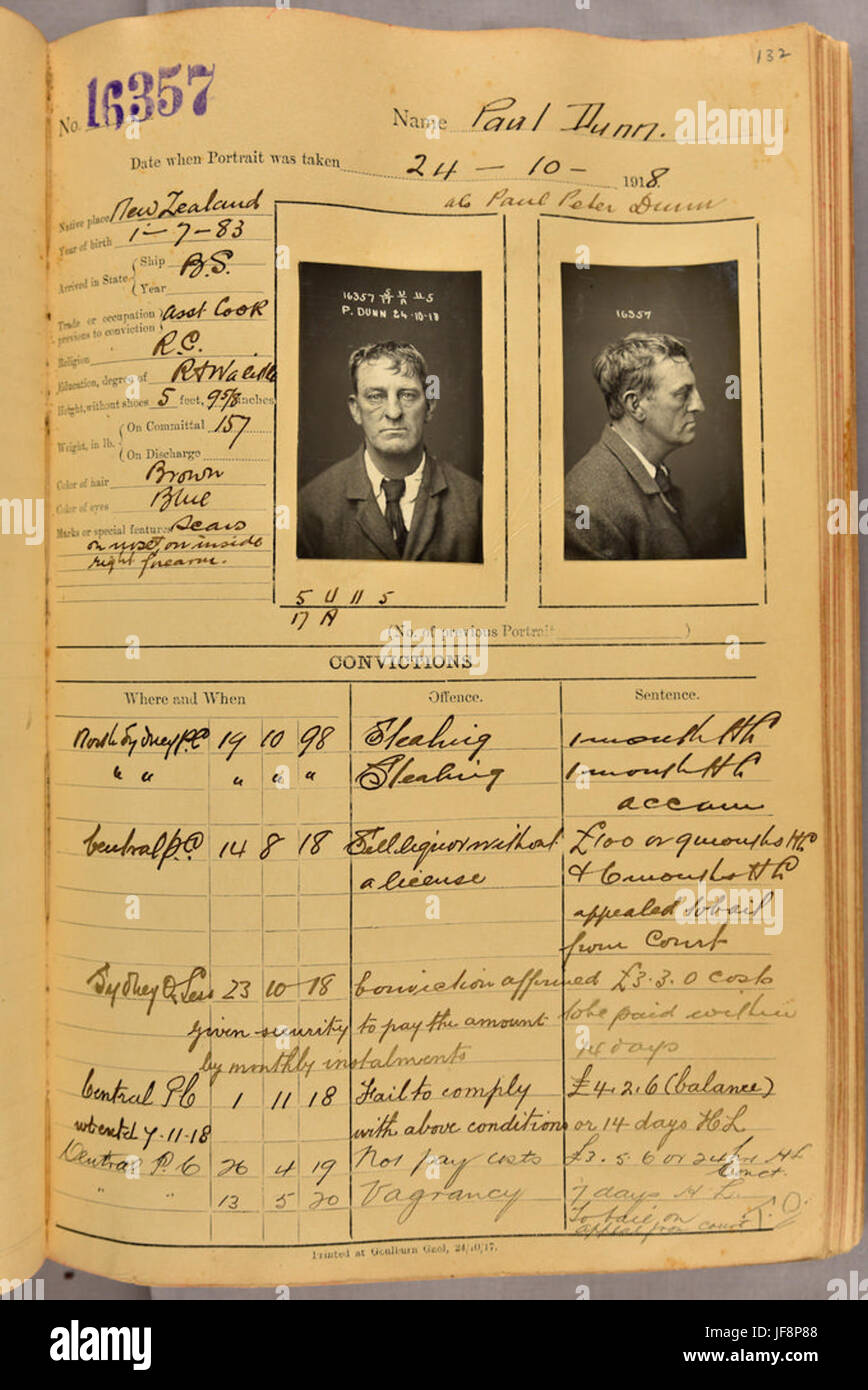 132
No. 16357
Name Paul Dunn.
Date when Portrait was taken 24 - 10 - 1918.
Paul Peter Dunn
Native place New Zealand
Year of birth 1-7-83
Arrived in State { Ship B.S.
Year
Trade or occupation previous to conviction } Asst Cook
Religion R.C.
Education, degree of R & W
Height, without shoes 5 feet, 9 5/8 inches
Weight, in lb. { On Committal 157
On Discharge
Color of hair Brown
Color of eyes Blue
Marks or special features Scars
on nose, on inside
right forearm.
16357 5/17 U/A 11 5
P. DUNN 24-10-18
16357
5 U 11 5
17 A
(No. of previous Portrait )
CONVICTIONS
Where and When Offence. Sentence.
North Sydney P.C 19 10 98 Stealing 1 month HL
" " " " " Stealing 1 month HL
accum
Central P.C 14 8 18 Sell liquor without £100 or 9 months HL
a license & 6 months HL
appealed to bail
from Court
Sydney Q. Sess 23 10 18 Conviction affirmed £3.3.0 costs
given security to pay the amount to be paid within
by monthly instalments 14 days
Central P.C 1 11 18 Fail to comply £4.2.6 (balance)
7-11-18 with above conditions or 14 days H L
Central P.C 26 4 19 Not pay costs £3.5.6 or 24 hrs HL
" " 13 5 20 Vagrancy 7 days H L
To bail on
appeal from court
Printed at Goulburn Gaol, 24/10/17.
alamy
Image ID: JF8P88
www.alamy.com